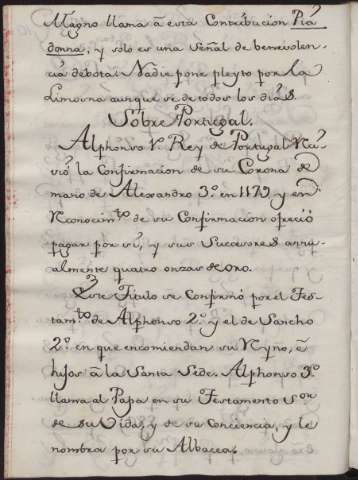 Magno llama â esta Contribucion Pia
donna, y solo es una señal de benevolen-
cia debota. Nadie pone pleyto por la
Limosna aunque se de todos los dias.
Sobre Portugal.
Alphonso V. Rey de Portugal Reci-
vió la Confirmacion de su Corona de
mano de Alexandro 3.º en 1179 y en
Reconocim.to de su Confirmacion ofreció
pagar por sí, y sus Succesores annu-
almente quatro onzas de oro.
Este Titulo se Confirmó por el Tes-
tam.to de Alphonso 2.º y el de Sancho
2.º en que encomiendan su Reyno, é
hijos â la Santa Sede. Alphonso 3.º
llama al Papa en su Testamento S.or
de su Vida, y de su Conciencia, y le
nombra por su Albacea.